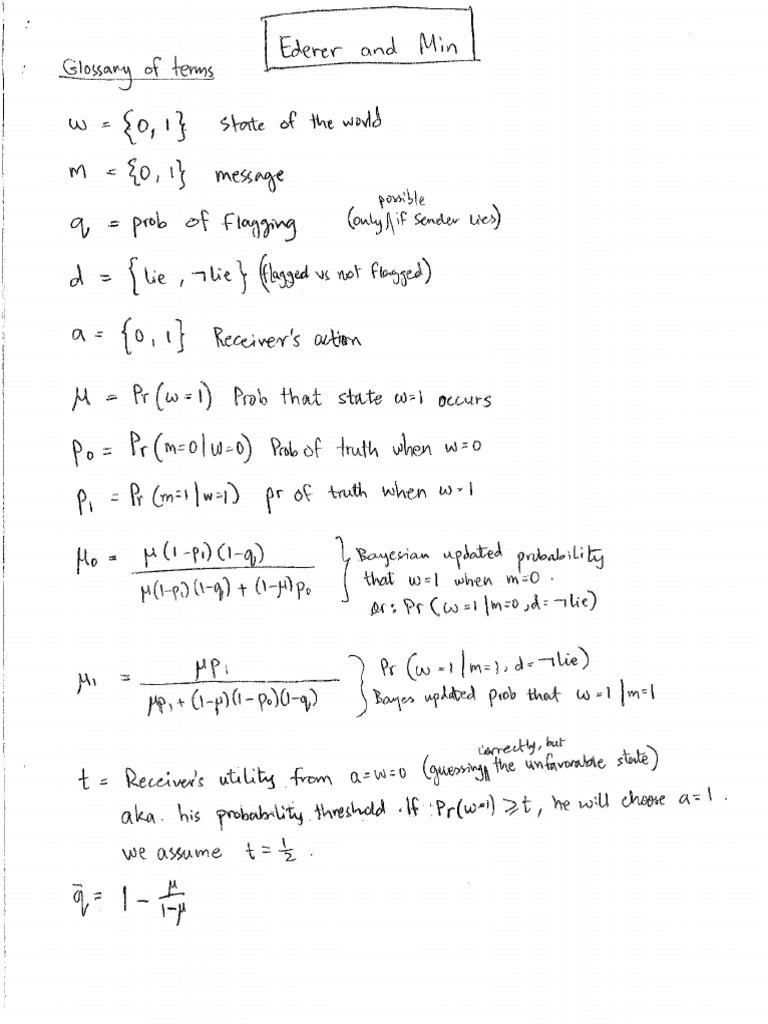 Ederer and Min
Glossary of terms
w = {0, 1} state of the world
m = {0, 1} message
possible
q = prob of flagging (only if sender lies)
d = {lie, ¬lie} (flagged vs not flagged)
a = {0, 1} Receiver's action
μ = Pr(w=1) Prob that state w=1 occurs
P₀ = Pr(m=0|w=0) Prob of truth when w=0
P₁ = Pr(m=1|w=1) pr of truth when w=1
μ₀ = μ(1-p₁)(1-q) / μ(1-p₁)(1-q) + (1-μ)p₀ } Bayesian updated probability
that w=1 when m=0.
or: Pr(w=1|m=0, d=¬lie)
μ₁ = μp₁ / μp₁ + (1-μ)(1-p₀)(1-q) } Pr(w=1|m=1, d=¬lie)
Bayes updated prob that w=1|m=1
correctly, but
t = Receiver's utility from a=w=0 (guessing the unfavorable state)
aka. his probability threshold. If Pr(w=1) ≥ t, he will choose a=1.
we assume t = 1/2.
q̄ = 1 - μ/1-μ